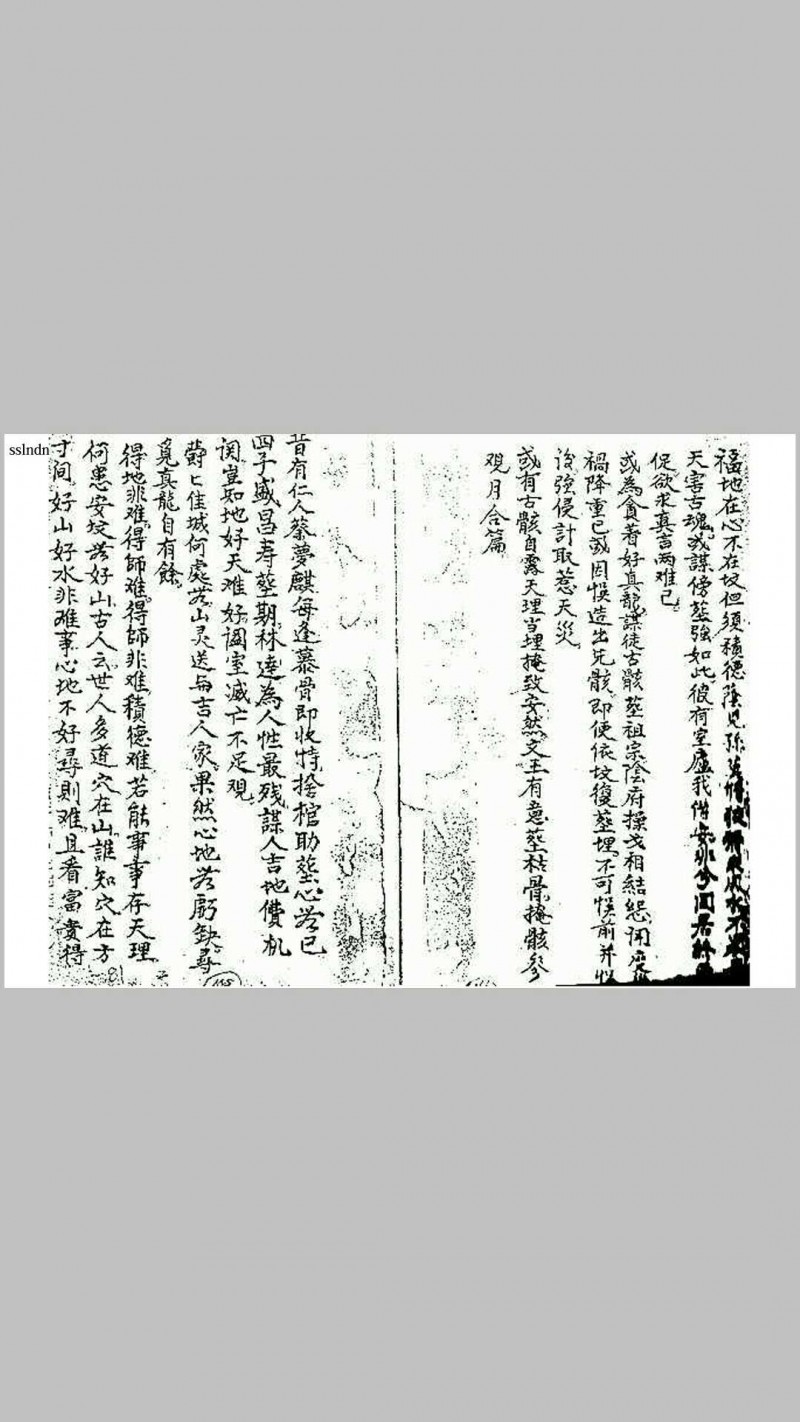 sslndn
福地在心不在坟但须積德陰児孫
天害古魂或謀傍塟強如此彼有室廬我借安
促欲求真吉两难已
或為貪着好真龍謀徒古骸塟祖宗陰府操戈相結怨
禍降重已或因悮造出兄骸即便依坟復塟埋不可悮前并
後強侵計取惹天災
或有古骸自露天理当埋掩致安然文王有意塟枯骨掩骸参
观月合篇
昔有仁人蔡夢麒每逢暴骨即收恃捨棺助塟心若已
四子盛昌寿塟期林達為人性最残謀人吉地費机
関豈知地好天难好阖室滅亡不足观
欝匕佳城何處若山灵送与吉人家果然心地若虧缺尋
覓真龍自有餘
得地非难得師难得師非难積德难若能事事存天理
何患安坟若好山古人云世人多道穴在山誰知穴在方
寸间好山好水非难事心地不好尋則难且看富貴得
118
81